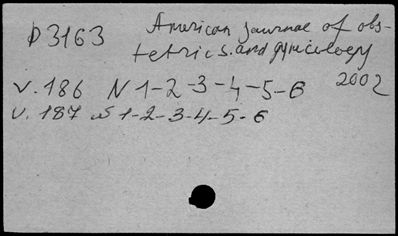 D3163 American journal of obs-
tetrics. and gynicology
2002
V. 186 N 1-2-3-4-5-6
V. 187 N 1-2-3-4-5-6